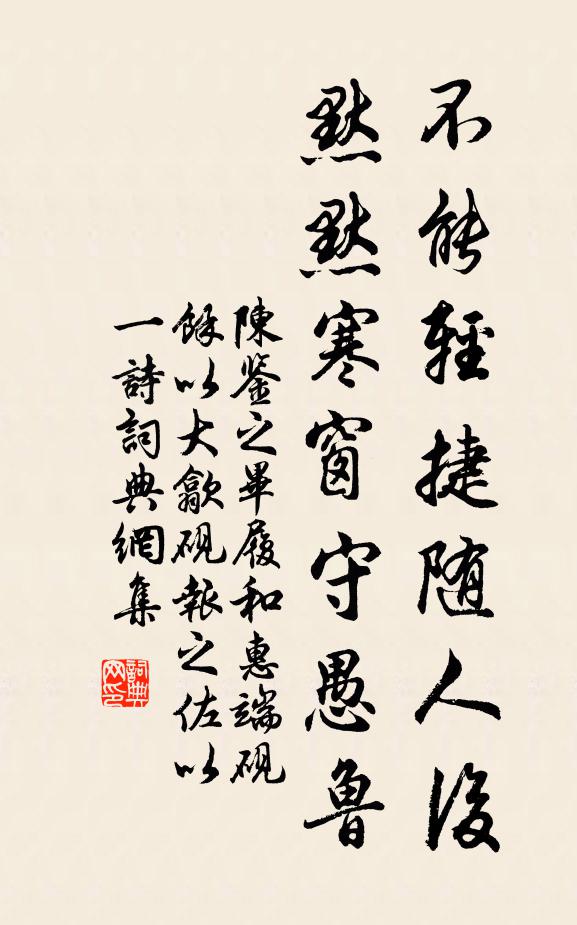 不能輕捷随人後
默默寒窗守愚魯
陳鉴之畢履和惠端硯
餘以大歙硯報之佐以
一詩詞典網集
詞典
网印